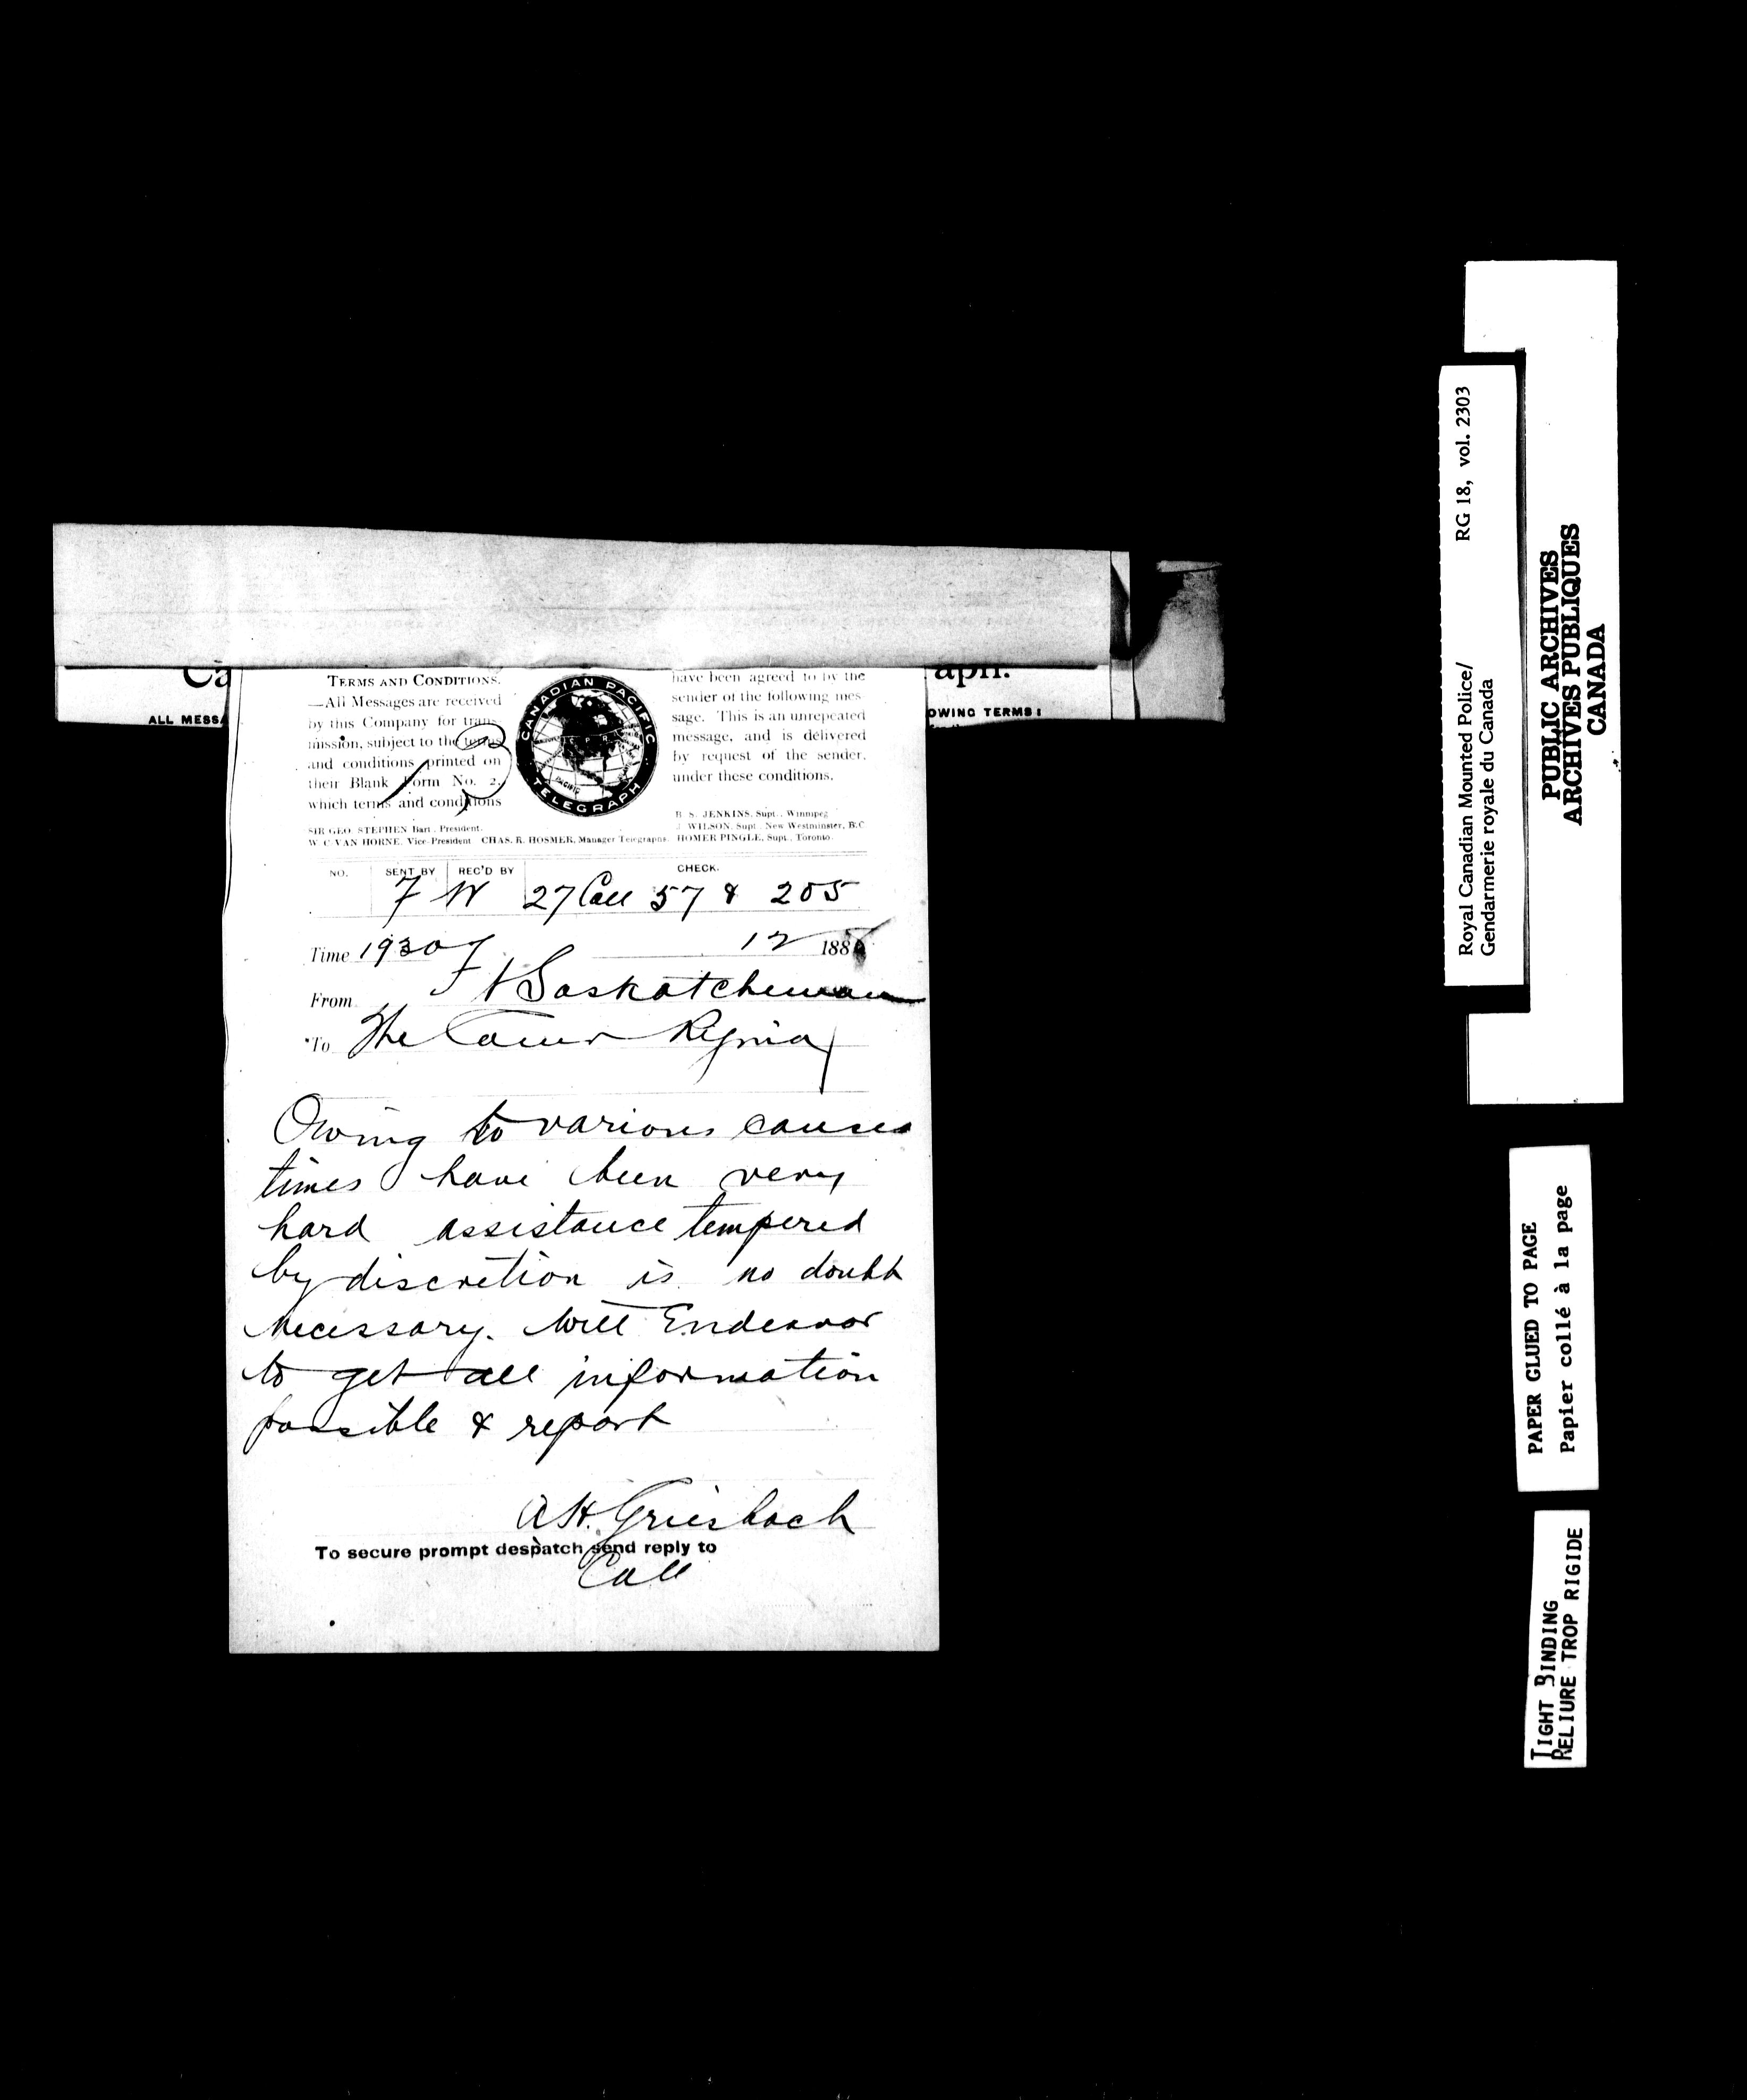 Ca
aph.
ALL MESSA
OWING TERMS:
TERMS AND CONDITIONS.
—All Messages are received
by this Company for trans-
mission, subject to the terms
and conditions printed on
their Blank Form No. 2,
which terms and conditions
have been agreed to by the
sender of the following mes-
sage. This is an unrepeated
message, and is delivered
by request of the sender,
under these conditions.
CANADIAN PACIFIC
TELEGRAPH
SIR GEO. STEPHEN Bart., President.
W. C. VAN HORNE, Vice-President CHAS. R. HOSMER, Manager Telegraphs.
B. S. JENKINS, Supt., Winnipeg
J. WILSON, Supt., New Westminster, B.C.
HOMER PINGLE, Supt., Toronto.
NO. SENT BY REC'D BY CHECK.
7 W 27 Coll 57 & 205
Time 1930 12 188
From Ft Saskatchewan
To The Comr Regina
Owing to various causes
times have been very
hard assistance tempered
by discretion is no doubt
necessary. Will Endeavor
to get all information
possible & report
A.H. Griesbach
To secure prompt despatch send reply to
Coll
Royal Canadian Mounted Police/ RG 18, vol. 2303
Gendarmerie royale du Canada
PUBLIC ARCHIVES
ARCHIVES PUBLIQUES
CANADA
PAPER GLUED TO PAGE
Papier collé à la page
TIGHT BINDING
RELIURE TROP RIGIDE